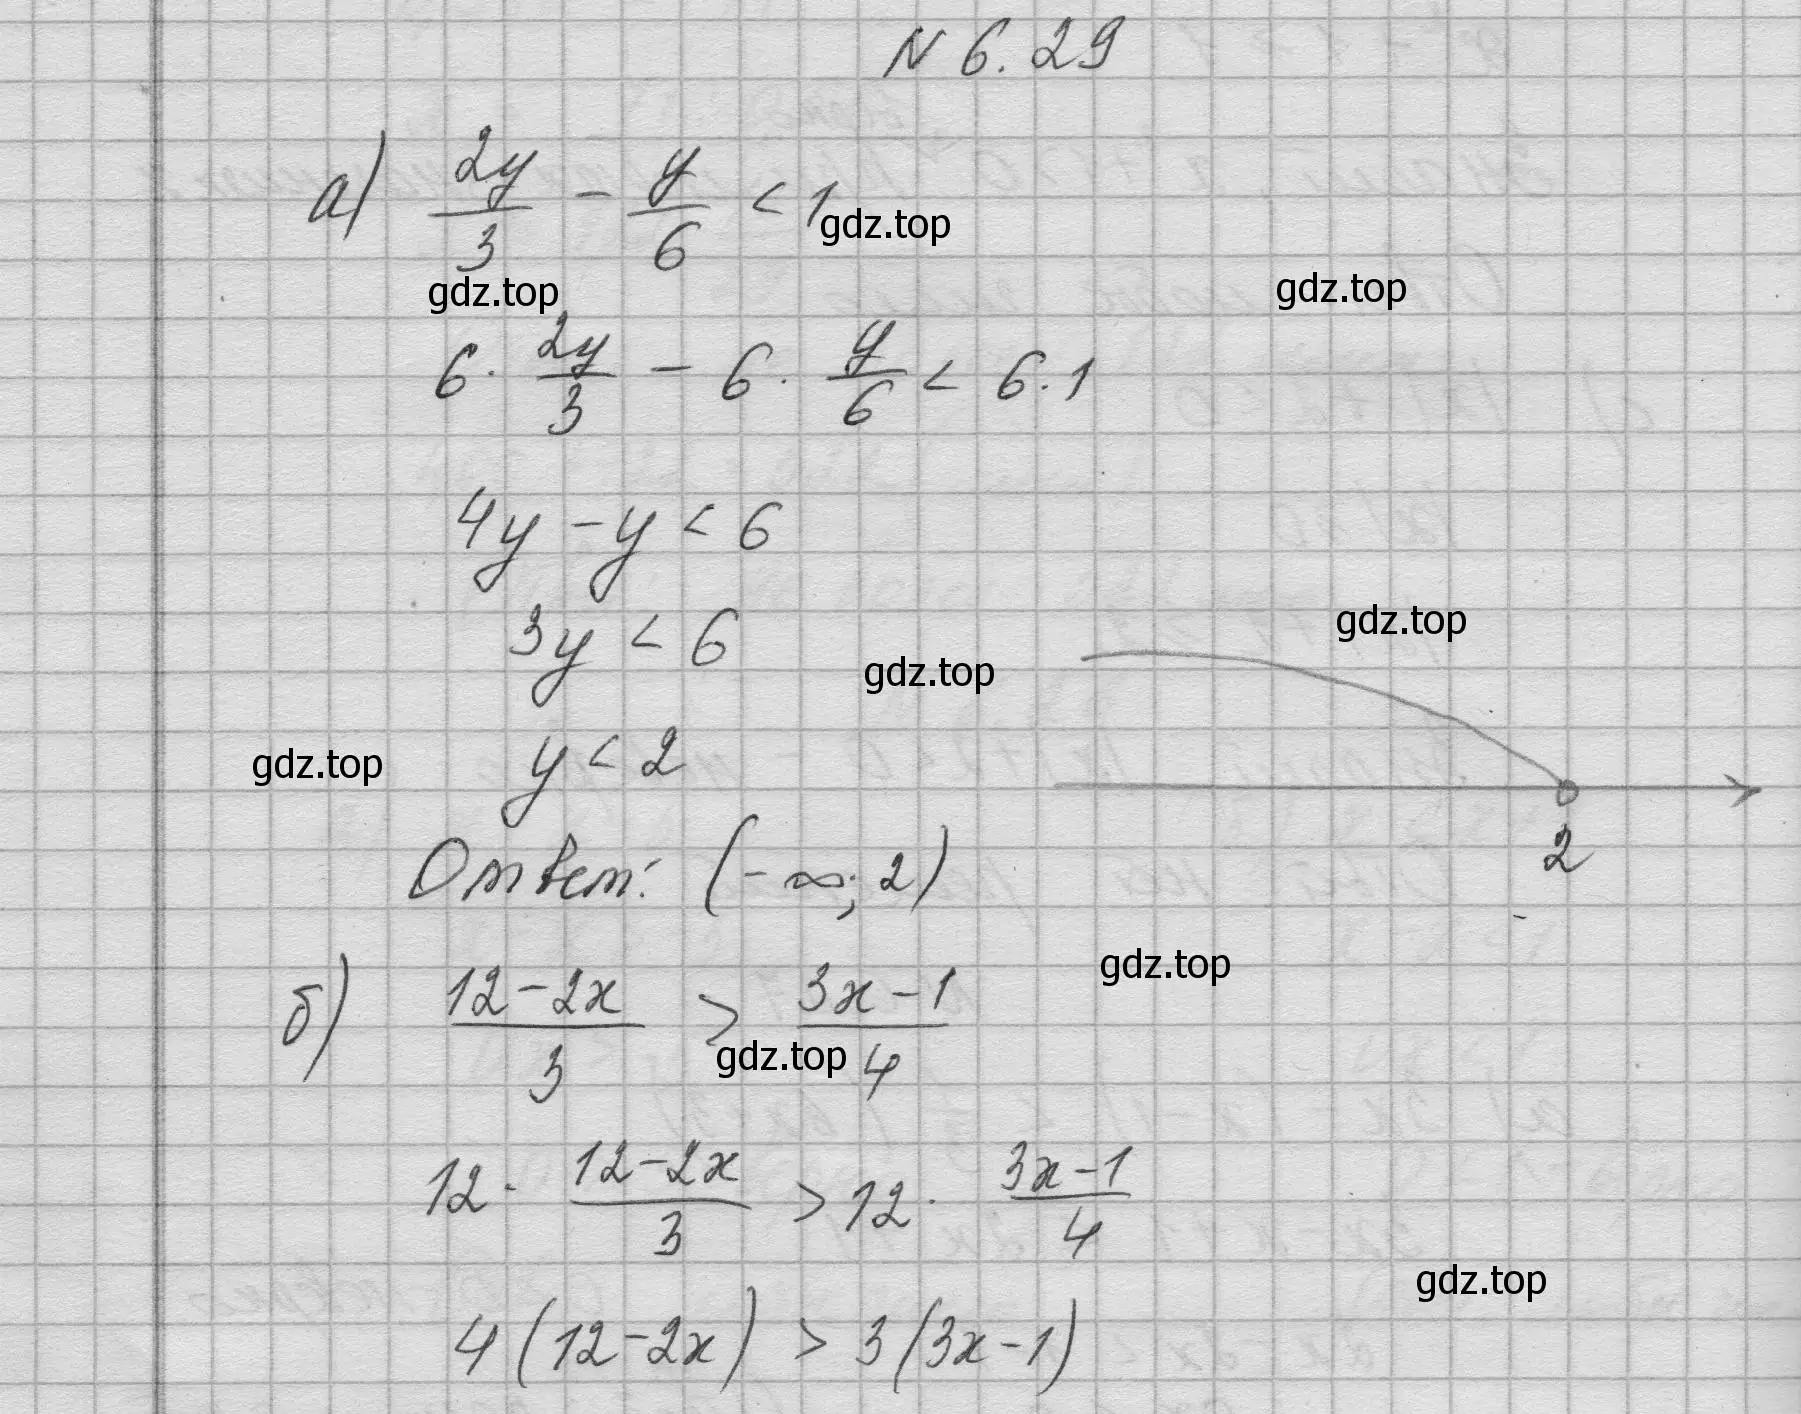 N 6.29
а) 2y/3 - y/6 < 1
gdz.top
gdz.top
gdz.top
6 · 2y/3 - 6 · y/6 < 6 · 1
4y - y < 6
gdz.top
3y < 6
gdz.top
y < 2
gdz.top
2
Ответ: (-∞; 2)
gdz.top
б) 12-2x/3 > 3x-1/4
gdz.top
12 · 12-2x/3 > 12 · 3x-1/4
gdz.top
4(12-2x) > 3(3x-1)